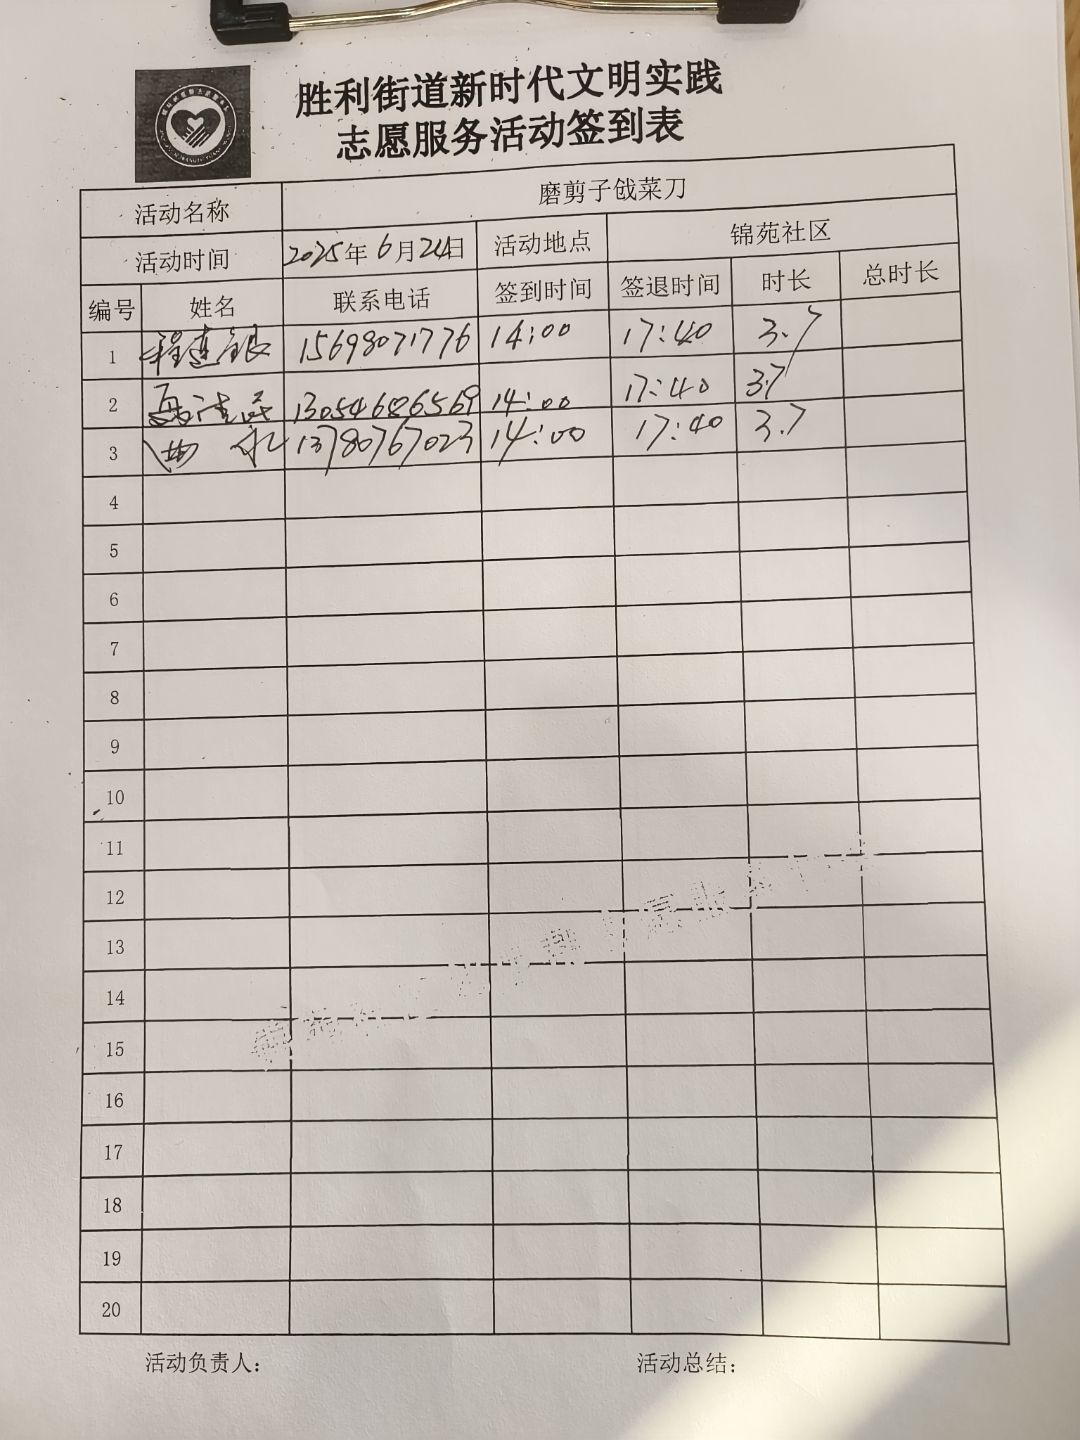 胜利街道新时代文明实践
志愿服务活动签到表
活动名称 磨剪子戗菜刀
活动时间 2025年6月24日 活动地点 锦苑社区
编号 姓名 联系电话 签到时间 签退时间 时长 总时长
1 程连银 15698071776 14:00 17:40 3.7
2 13054686569 14:00 17:40 3.7
3 13780767023 14:00 17:40 3.7
4
5
6
7
8
9
10
11
12
13
14
15
16
17
18
19
20
活动负责人: 活动总结: